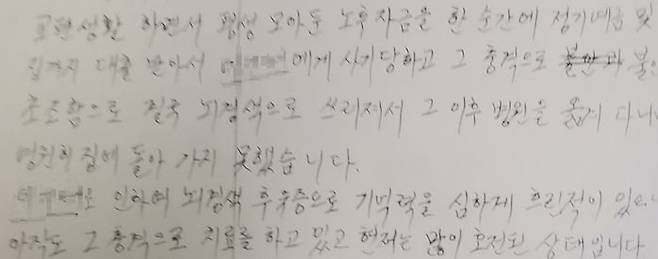 교편생활 하면서 평생 모아둔 노후자금을 한 순간에 정기예금 및
집까지 대출 받아서 에게 사기당하고 그 충격으로 불안과 불안
초조함으로 결국 뇌경색으로 쓰러져서 그 이후 병원을 옮겨 다니
영원히 집에 돌아 가지 못했습니다.
인하여 뇌경색 후유증으로 기억력을 심하게 흐린적이 있으
아직도 그 충격으로 치료를 하고 있고 현재는 많이 호전된 상태입니다